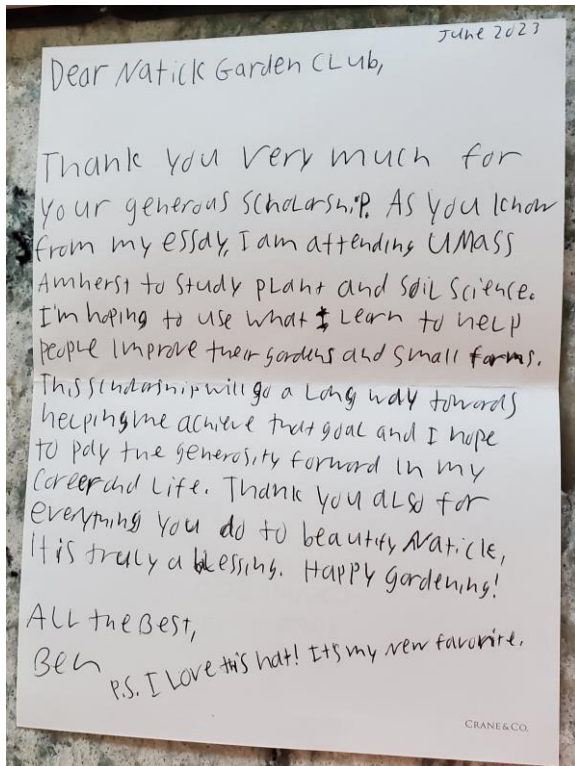 June 2023
Dear Natick Garden Club,
Thank you very much for
your generous scholarship. As you know
from my essay, I am attending UMASS
Amherst to study plant and soil science.
I'm hoping to use what I learn to help
people improve their gardens and small farms.
This scholarship will go a long way towards
helping me achieve that goal and I hope
to pay the generosity forward in my
career and life. Thank you also for
everything you do to beautify Natick,
It is truly a blessing. Happy gardening!
All the Best,
Ben
P.S. I Love this hat! Its my new favorite.
CRANE & CO.